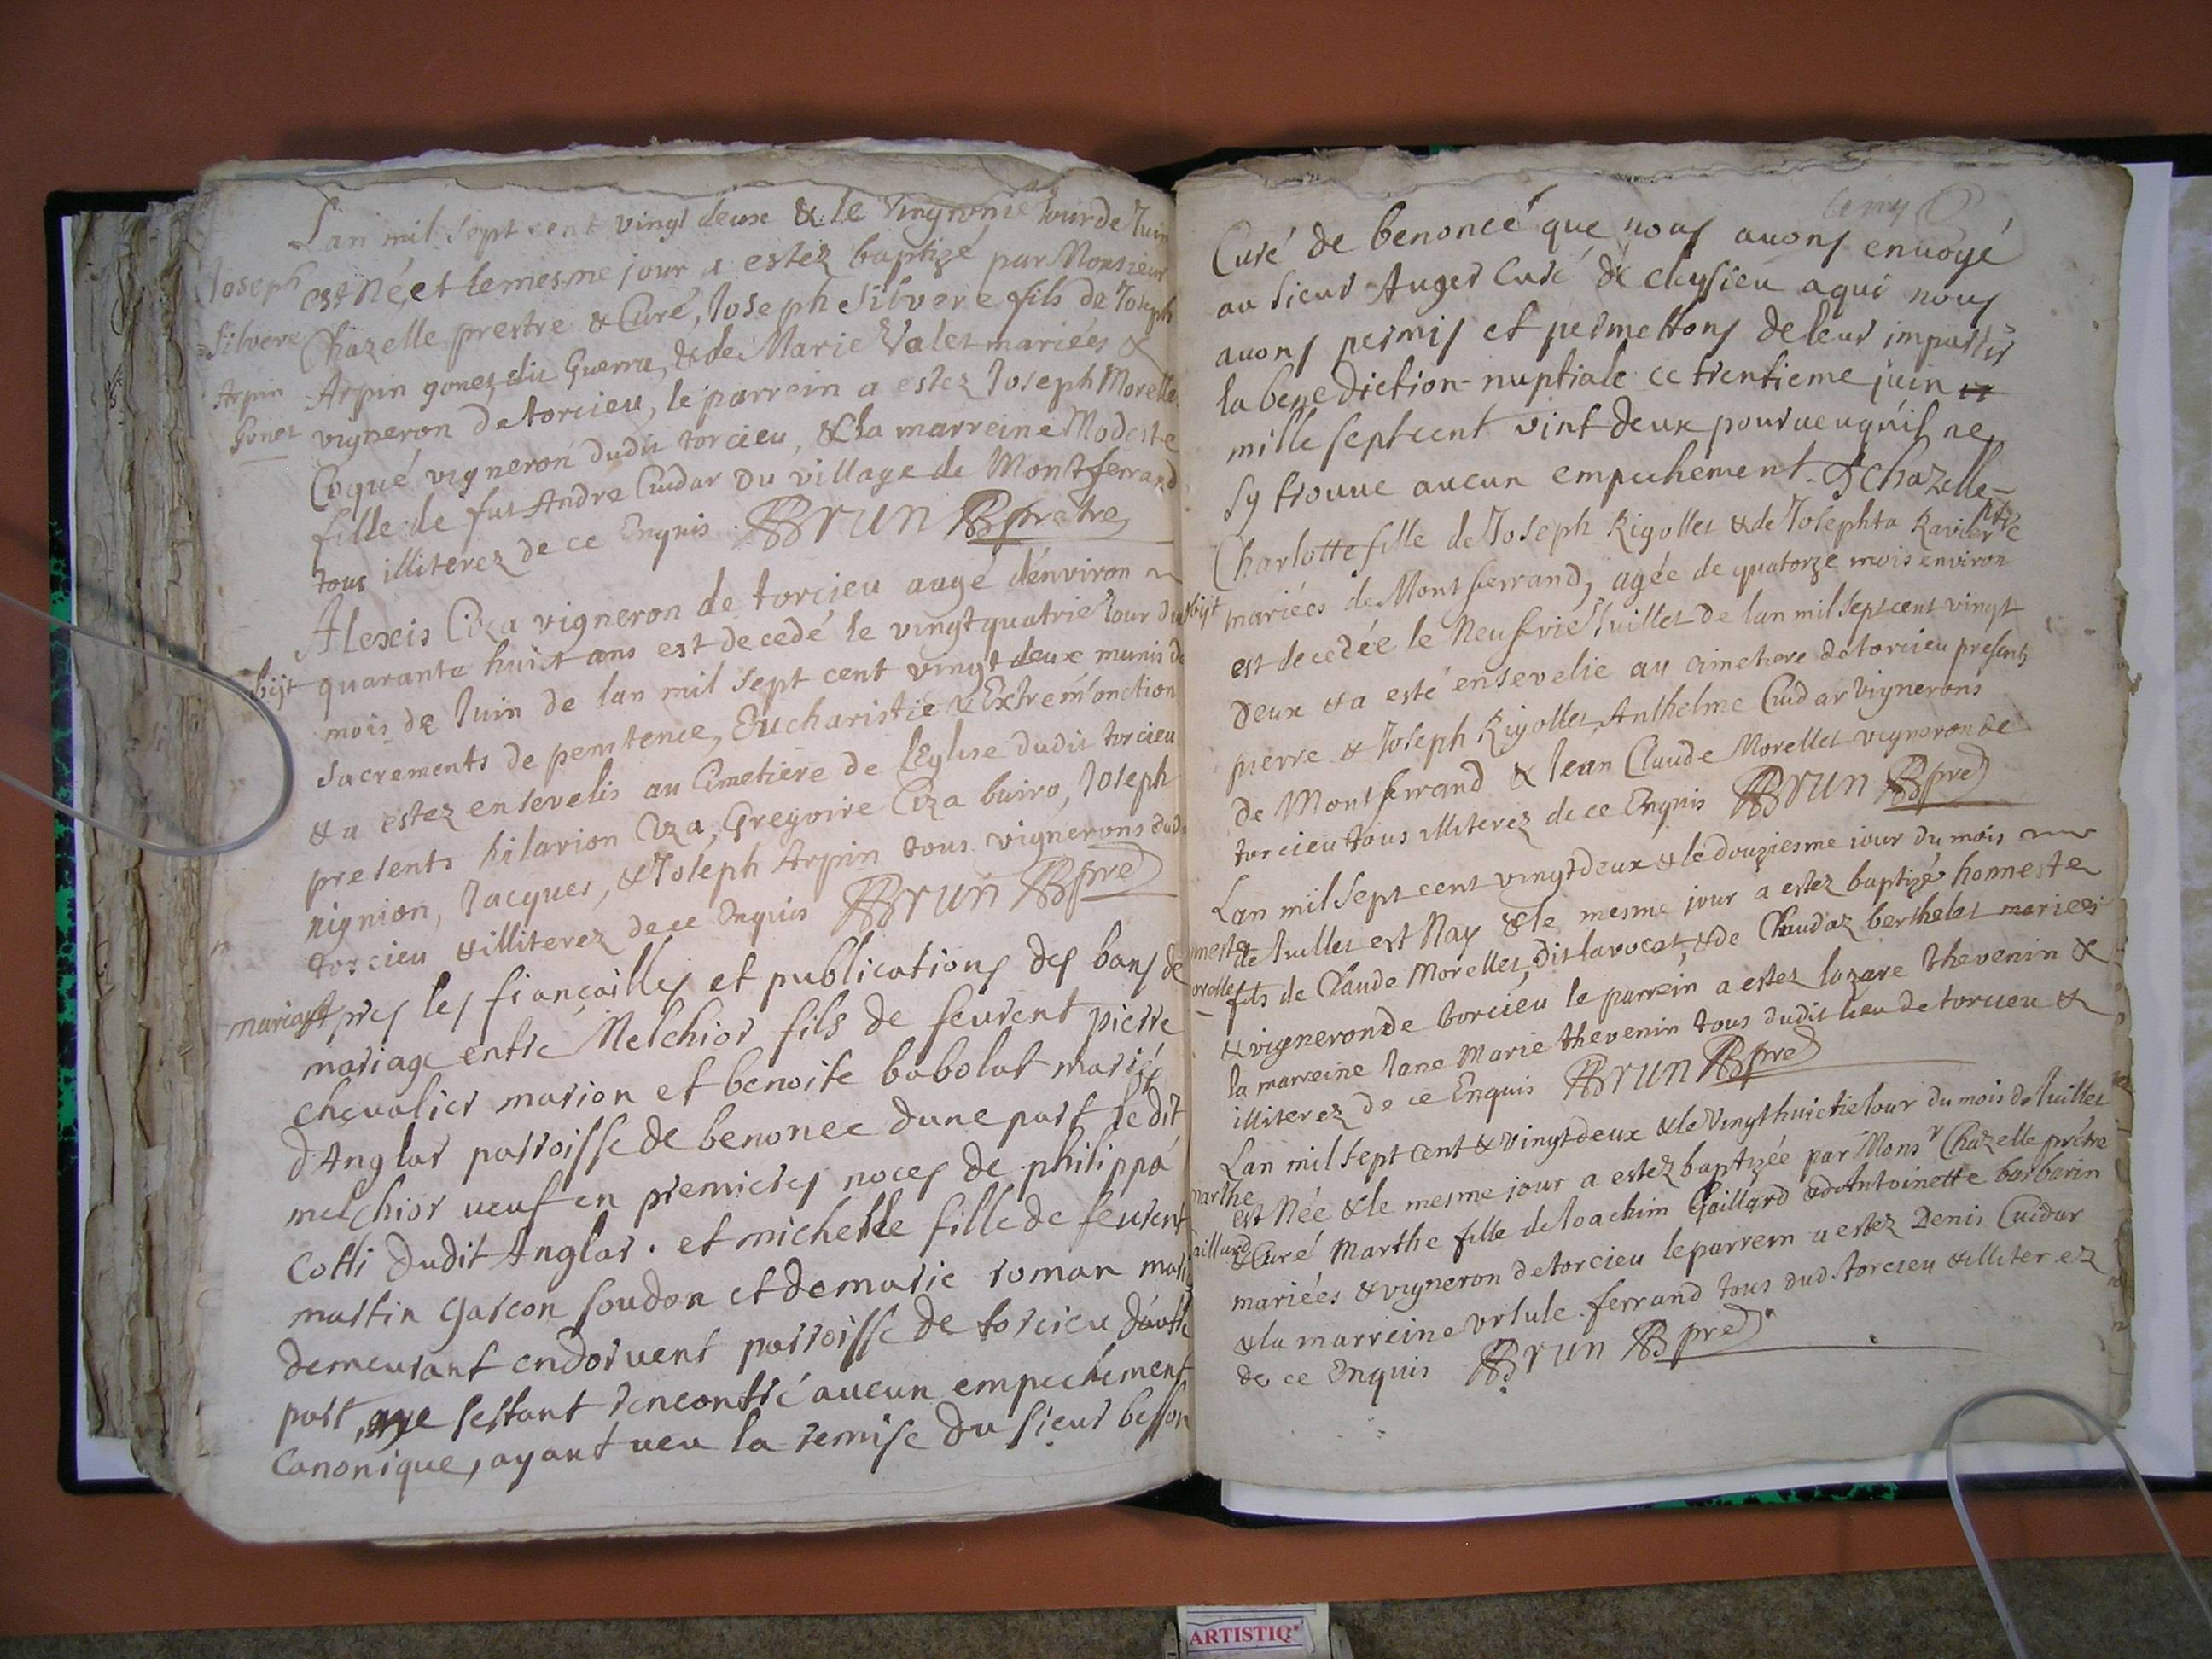 Lan mil sept cent vingt deux & le jour de Juin
Joseph est Né, et le mesme jour a estez baptizé par Monsieur
Silvere Chazelle prestre & Curé, Joseph Silvere fils de Joseph
Arpin Arpin gonet dit Guerra, & de Marie Valet mariées &
Gonet vigneron de torcieu, le parrein a estez Joseph Morelle
Coqué vigneron dudit torcieu, & la marreine Modeste
fille de fut Andre Cuidar du village de Montferrand
tous illiterez de ce Enquis. BRUN prêtre
Alexis Ciza vigneron de torcieu aagé d'environ
obijt quarante huict ans est decedé le vingtquatrie Jour du
mois de Juin de lan mil sept cent vingt deux munis de
sacrements de penitence, Eucharistie & Extrem'onction
& a estez ensevelis au Cimetiere de l'Eglise dudit torcieu
presents hilarion Ciza, Gregoire Ciza buiro, Joseph
nignion, Jacques, & Joseph Arpin tous vignerons dud
torcieu & illiterez de ce Enquis BRUN pre
maria Apres les fiançailles et publications des bans de
mariage entre Melchior fils de feurent pierre
chevalier marion et benoite babolat mariés
d'Anglar parroisse de benonce dune part le dit
melchior veuf en premieres noces de philippa
Cotti dudit Anglar. et michelle fille de feurent
martin garcon soudon et de marie roman mariés
demeurant endorvent parroisse de torcieu d'autre
part, ne sestant rencontré aucun empechement
Canonique, ayant veu la remise du sieur besson
Curé de benonce que nous avons envoyé
au sieur Auger Curé de cleysieu a qui nous
avons permis et permettons de leur impartir
la benediction nuptiale ce trentieme juin
mille sept cent vint deux pourveu qu'il ne
sy trouve aucun empechement. Chazelle
ptre
Charlotte fille de Joseph Rigollet & de Josephta Ravier
obijt mariées de Montferrand, agée de quatorze mois environ
est decedée le Neufvie Juillet de lan mil sept cent vingt
deux & a esté ensevelie au cimetiere de torcieu presents
pierre & Joseph Rigollet, Anthelme Cuidar vignerons
de Montferrand & Jean Claude Morellet vigneron de
torcieu tous illiterez de ce Enquis BRUN pre
Lan mil sept cent vingt deux & le douziesme jour du mois
de Juillet est Nay & le mesme jour a estez baptizé honneste
fils de Claude Morellet, dit lavocat, & de Claudaz berthelet mariées
& vigneron de torcieu le parrein a estez lazare thevenin &
la marreine Jane Marie thevenin tous dudit lieu de torcieu &
illiterez de ce Enquis BRUN pre
Lan mil sept cent & vingt deux & le Vingt huictie Jour du mois de Juillet
marthe est Née & le mesme jour a estez baptizée par Monsr Chazelle prêtre
gaillard & Curé Marthe fille de Joachim Gaillard & de Antoinette barbarin
mariées & vigneron de torcieu le parrein a estez Denis Cuidar
& la marreine Ursule ferrand tous dud torcieu & illiterez
de ce Enquis BRUN pre
ARTISTIQ